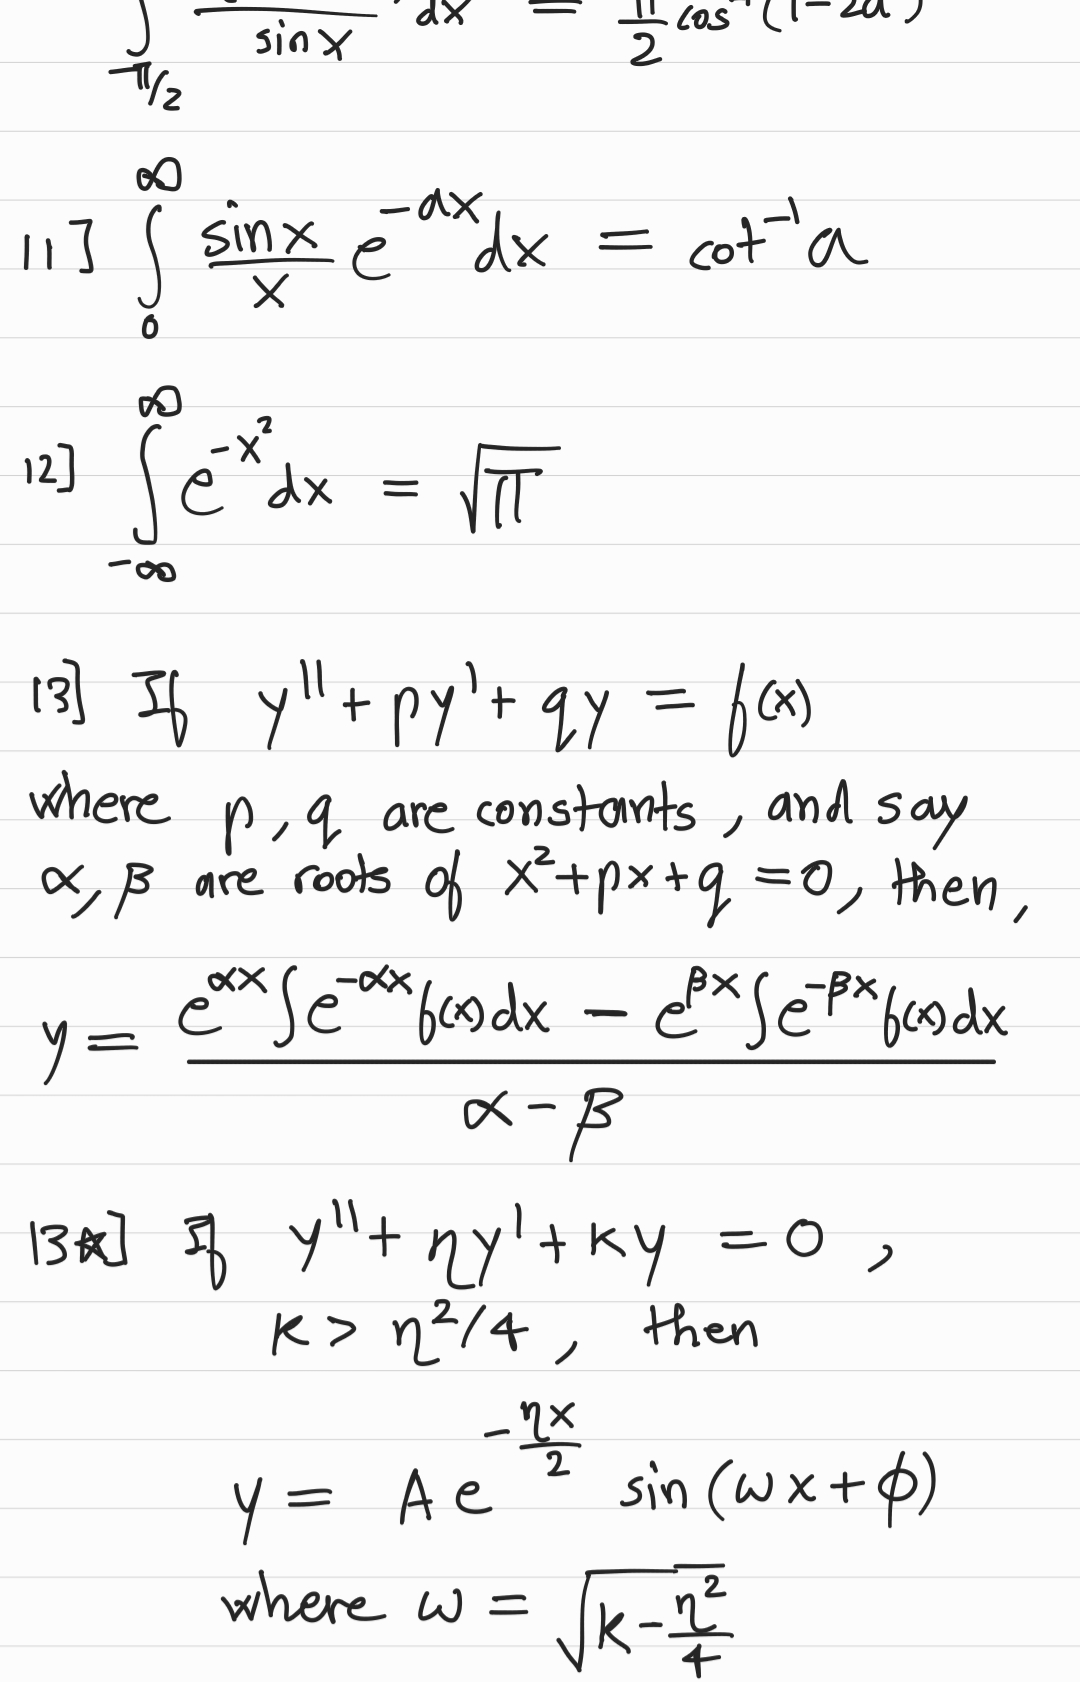 ∫_{-π/2} / sin x dx = π/2 cos (1-2a)
11] ∫_0^∞ (sin x / x) e^{-ax} dx = cot^{-1} a
12] ∫_{-∞}^∞ e^{-x^2} dx = √π
13] If y'' + py' + qy = f(x)
where p, q are constants, and say
α, β are roots of x^2 + px + q = 0, then,
y = (e^{αx} ∫ e^{-αx} f(x) dx - e^{βx} ∫ e^{-βx} f(x) dx) / (α - β)
13*] If y'' + ηy' + ky = 0,
k > η^2/4, then
y = A e^{-ηx/2} sin (ωx + φ)
where ω = √(k - η^2/4)